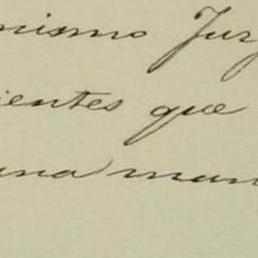 mismo Juz
ientes que
una man